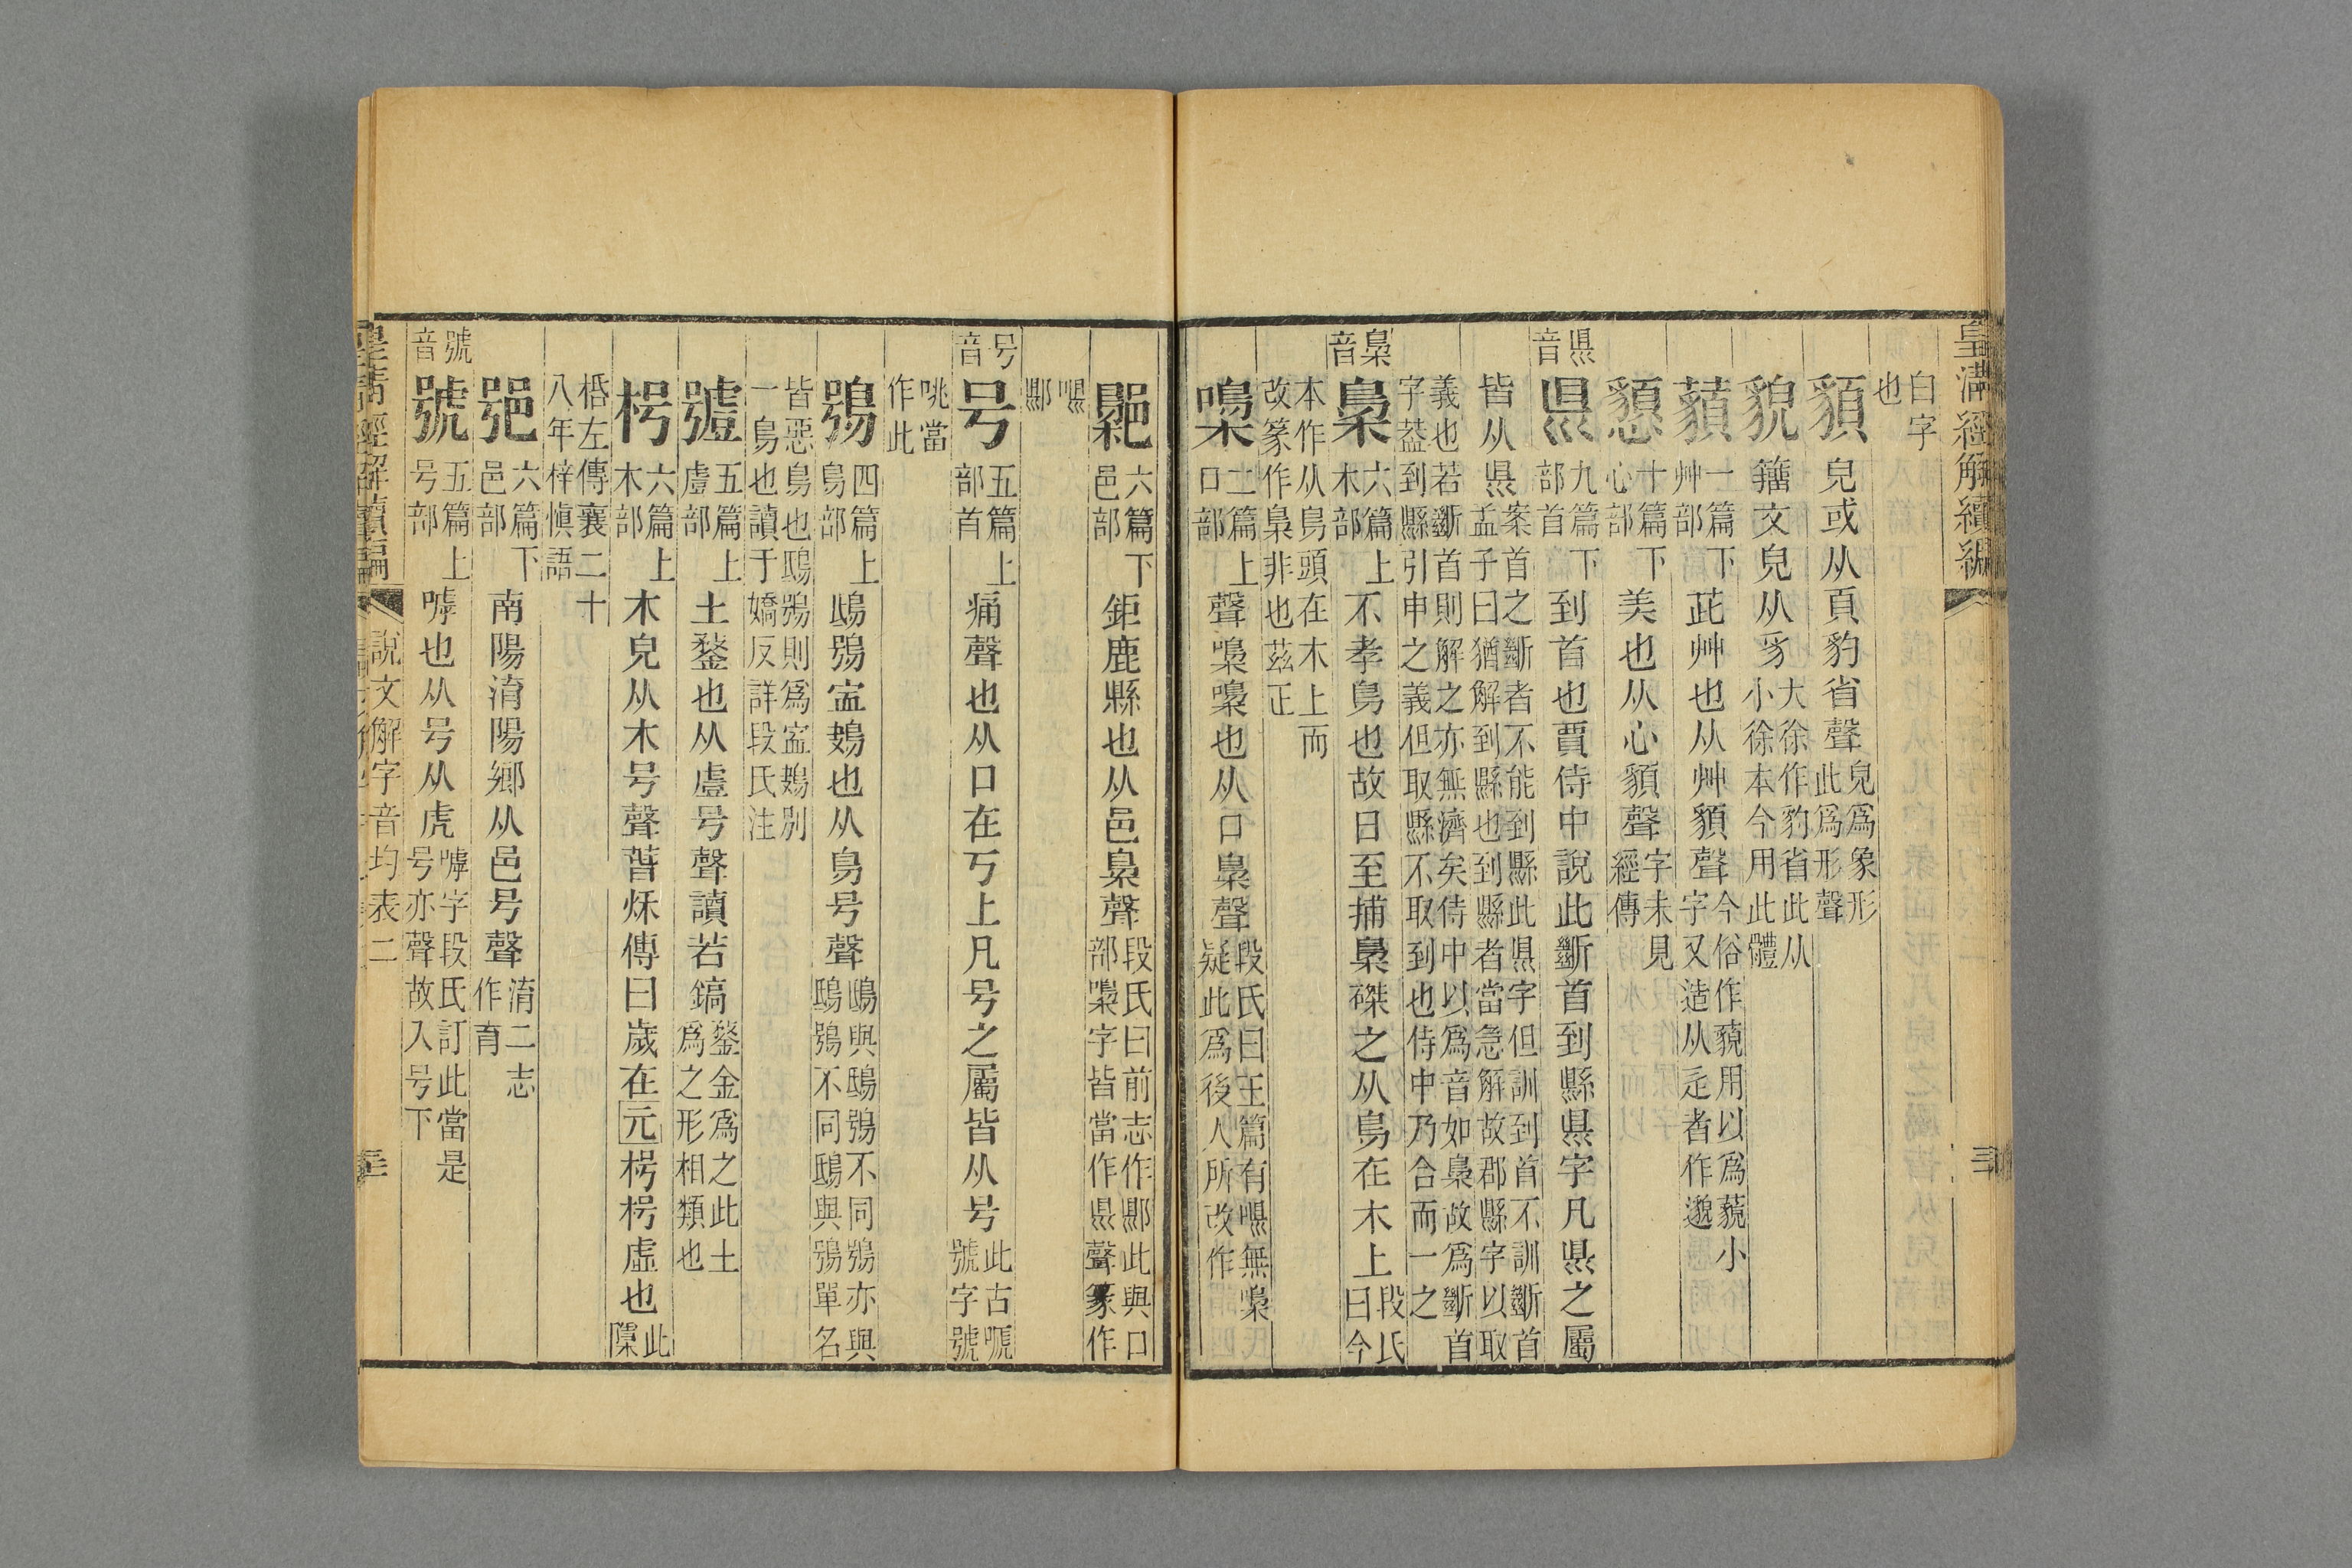 皇清經解續編
白字
也
䫉 皃或从頁豹省聲 皃爲象形
此爲形聲
貌 籒文皃从豸 大徐作豹省此从
小徐本今用此體
藐 一篇下
艸部 茈艸也从艸䫉聲 今俗作藐用以爲藐小
字又造从辵者作邈
懇 十篇下
心部 美也从心䫉聲 字未見
經傳
県音 県 九篇下
部首 到首也賈侍中說此斷首到縣県字凡県之屬
皆从県 案首之斷者不能到縣此県字但訓到首不訓斷首
孟子曰猶解到縣也到縣者當急解故郡縣字以取
義也若斷首則解之亦無濟矣侍中以爲音如梟故爲斷首
字葢到縣引申之義但取縣不取到也侍中乃合而一之
梟音 梟 六篇上
木部 不孝鳥也故日至捕梟磔之从鳥在木上 段氏
曰今
本作从鳥頭在木上而
改篆作梟非也茲正
嘄 二篇上
口部 聲嘄嘄也从口梟聲 段氏曰玉篇有㗛無嘄
疑此爲後人所改作
鄡 六篇下
邑部 鉅鹿縣也从邑梟聲 段氏曰前志作鄡此與口
部嘄字皆當作県聲篆作
㗛
鄡
号音 号 五篇上
部首 痛聲也从口在丂上凡号之屬皆从号 此古嘑
號字號
咷當
作此
鴞 四篇上
鳥部 鴟鴞寍鴂也从鳥号聲 鴟與鴟鴞不同鴞亦與
鴟鴞不同鴟與鴞單名
皆惡鳥也鴟鴞則爲寍鴂別
一鳥也讀于嬌反詳段氏注
號 五篇上
䖒部 土鍪也从䖒号聲讀若鎬 鍪金爲之此土
爲之形相類也
枵 六篇上
木部 木皃从木号聲萅秌傳曰歲在元枵枵虛也 此
隱
栝左傳襄二十
八年梓愼語
郻 六篇下
邑部 南陽淯陽鄉从邑号聲 淯二志
作育
號音 號 五篇上
号部 嘑也从号从虎 嘑字段氏訂此當是
号亦聲故入号下
皇清經解續編 說文解字音均表二